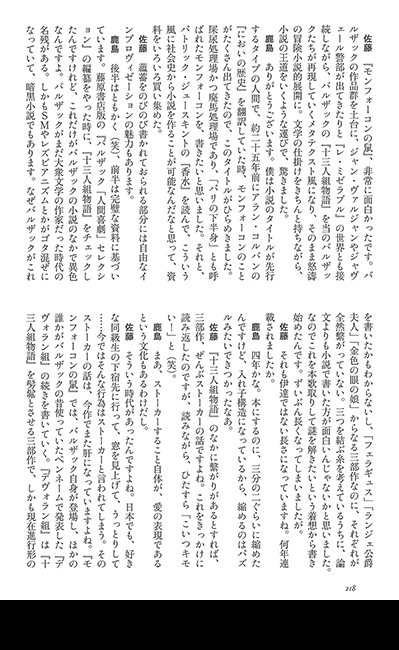 佐藤　『モンフォーコンの鼠』、非常に面白かったです。バ
ルザックの作品群を土台に、ジャン・ヴァルジャンやジャヴ
ェール警部が出てきたりと『レ・ミゼラブル』の世界とも接
続しながら、バルザックの『十三人組物語』を当のバルザッ
クたちが再現していくメタテクスト風になり、そのまま怒濤
の冒険小説的展開に。文学の仕掛けをきちんと持ちながら、
小説の王道をいくような運びで、驚きました。
鹿島　ありがとうございます。僕は小説のタイトルが先行
するタイプの人間で、約二十五年前にアラン・コルバンの
『においの歴史』を翻訳していた時、モンフォーコンのこと
がたくさん出てきたので、このタイトルがひらめきました。
屎尿処理場かつ廃馬処理場であり、「パリの下半身」とも呼
ばれたモンフォーコンを、書きたいと思いました。それと、
パトリック・ジュースキントの『香水』を読んで、こういう
風に社会史から小説を作ることが可能なんだなと思って、資
料をいろいろ買い集めた。
佐藤　蘊蓄をのびのび書かれておられる部分には自由なイ
ンプロヴィゼーションの魅力もあります。
鹿島　後半はともかく（笑）、前半は完璧な資料に基づい
ています。藤原書店版の『バルザック「人間喜劇」セレクシ
ョン』の編纂をやった時に、『十三人組物語』をチェックし
たんですけれど、これだけがバルザックの小説のなかで異色
なんですよ。バルザックがまだ大衆文学の作家だった時代の
名残がある。しかもSMやレズビアニズムとかがゴタ混ぜに
なっていて、暗黒小説でもあります。なぜバルザックがこれ
を書いたかもわからないし、「フェラギュス」「ランジェ公爵
夫人」「金色の眼の娘」からなる三部作なのに、それぞれが
全然繋がっていない。三つを結ぶ糸を考えているうちに、論
文よりも小説で書いた方が面白いんじゃないかと思いました。
なのでこれを本歌取りして謎を解きたいという着想から書き
始めたんです。ずいぶん長くなってしまいましたが。
佐藤　それも伊達ではない長さになっていますね。何年連
載されましたか。
鹿島　四年かな。本にするのに、三分の二ぐらいに縮めた
んですけど、入れ子構造になっているから、縮めるのはパズ
ルみたいできつかったなあ。
佐藤　『十三人組物語』のなかに繋がりがあるとすれば、
三部作、ぜんぶストーカーの話ですよね。これをきっかけに
読み返したのですが、読みながら、ひたすら「こいつキモ
い！」と（笑）。
鹿島　まあ、ストーカーすること自体が、愛の表現である
という文化もあるわけだし。
佐藤　そういう時代があったんですよね。日本でも、好き
な同級生の下宿先に行って、窓を見上げて、うっとりして
……今ではそんな行為はストーカーと言われてしまう。その
ストーカーの話は、今作でまた肝になっていますよね。『モ
ンフォーコンの鼠』では、バルザック自身が登場し、ほかの
誰かがバルザックの昔使っていたペンネームで発表した『デ
ヴォラン組』の続きを書いていく。『デヴォラン組』は『十
三人組物語』を髣髴とさせる三部作で、しかも現在進行形の
218